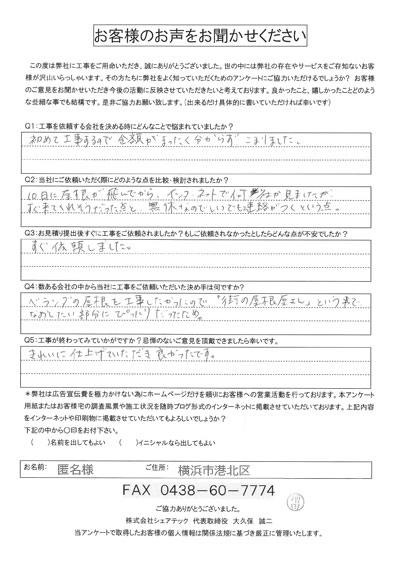 お客様のお声をお聞かせください
この度は弊社に工事をご用命いただき、誠にありがとうございました。世の中には弊社の存在やサービスをご存知ないお客
様が沢山いらっしゃいます。その方たちに弊社をよく知っていただくためのアンケートにご協力いただけるでしょうか？ お客様
のご意見をお聞かせいただき今後の活動に反映させていただきたいと考えております。良かったこと、嬉しかったことどのよう
な些細な事でも結構です。是非ご協力お願い致します。（出来るだけ具体的に書いていただければ幸いです）
Q1：工事を依頼する会社を決める時にどんなことで悩まれていましたか？
初めて工事するので金額がまったく分からずこまりました。
Q2：当社にご依頼いただく際にどのような点を比較・検討されましたか？
10日に屋根が飛んでから、インターネットで何社か見ましたが
すぐ来てくれそうだった点と、無休なのでいつでも連絡がつくという点。
Q3：お見積り提出後すぐに工事をご依頼されましたか？もしご依頼されなかったとしたらどんな点が不安でしたか？
すぐ依頼しました。
Q4：数ある会社の中から当社に工事をご依頼いただいた決め手は何ですか？
ベランダの屋根を工事したかったので「街の屋根屋さん」という事で
なおしたい部分にぴったりだったため。
Q5：工事が終わってみていかがですか？忌憚のないご意見を頂戴できましたら幸いです。
きれいに仕上げていただき良かったです。
＊弊社は広告宣伝費を極力かけない為にホームページだけを頼りにお客様への営業活動を行っております。本アンケート
用紙またはお客様宅の調査風景や施工状況を随時ブログ形式のインターネットに掲載させていただいております。上記内容
をインターネットや印刷物に掲載させていただいてもよろしいでしょうか？
下記の中から〇印をお付下さい。
（　）名前を出してもよい　（　）イニシャルなら出してもよい
お名前： 匿名様 ご住所： 横浜市港北区
FAX 0438-60-7774
ご協力ありがとうございました。
株式会社シェアテック 代表取締役 大久保 誠二
当アンケートで取得したお客様の個人情報は関係法規に基づき厳正に管理いたします。